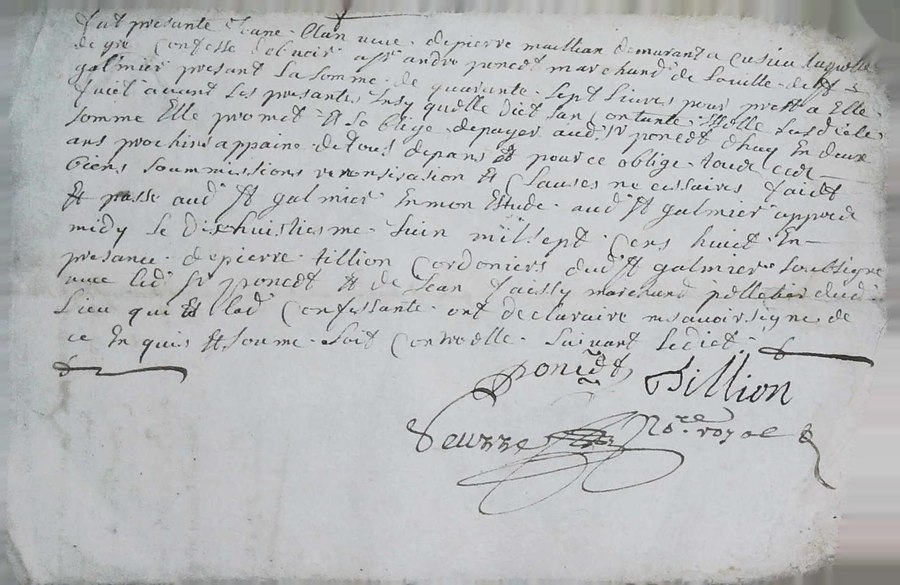 fut presante Jeanne vueve de pierre maillian demurant a cusieu laquelle
de gre confesse debvoir a sr andre poncet marchand de la ville de st
galmier presant la somme de quarante sept livres pour prest a Elle
faict avant ses presantes Insy quelle dict san contante Et elle susdicte
somme Elle promet Et soblige de payer aud sr poncet dhuy En deux
ans prochins appaine de tous depans Et pour ce oblige tous ces
biens soummissions renonsiasion Et clauses necessaires faict
Et passe aud St galmier En mon Estude aud St galmier appred
midy le dixhuistiesme Juin mil sept cens huict En
presance de pierre tillion cordoniers dud St galmier soubsigne
avec led sr poncet Et de Jean faissy marchand pelletier dud
lieu qui Et lad confessante ont declaraire ne savoir signe de
ce Enquis Et soume soit controolle suivant ledict
poncet tillion
nore royal